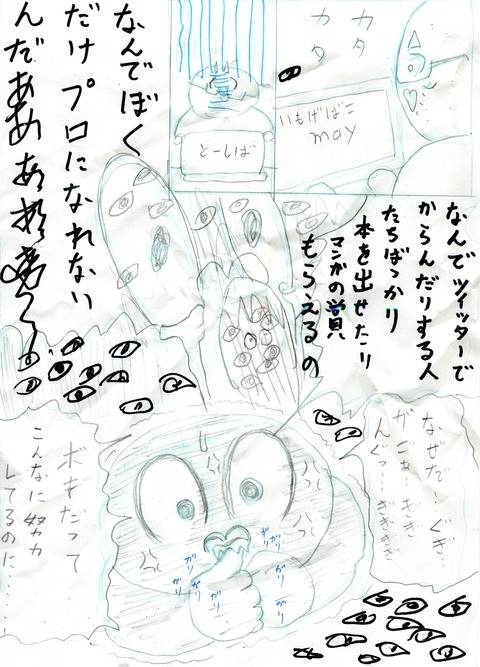 カタ
カタ
いもげばこ
may
とーしば
なんでツイッターで
からんだりする人
たちばっかり
本を出せたり
マンガの賞
もらえるの
なんでぼく
だけプロになれない
んだああ
なぜだ…ぐぎ…
がごぉぎぎ
んぐっ…ぎぎぎぎ
ガリ
ガリ
ガリ
ガリ
ガリ
ガリ
ガリ
ボキだって
こんなに努力
してるのに……